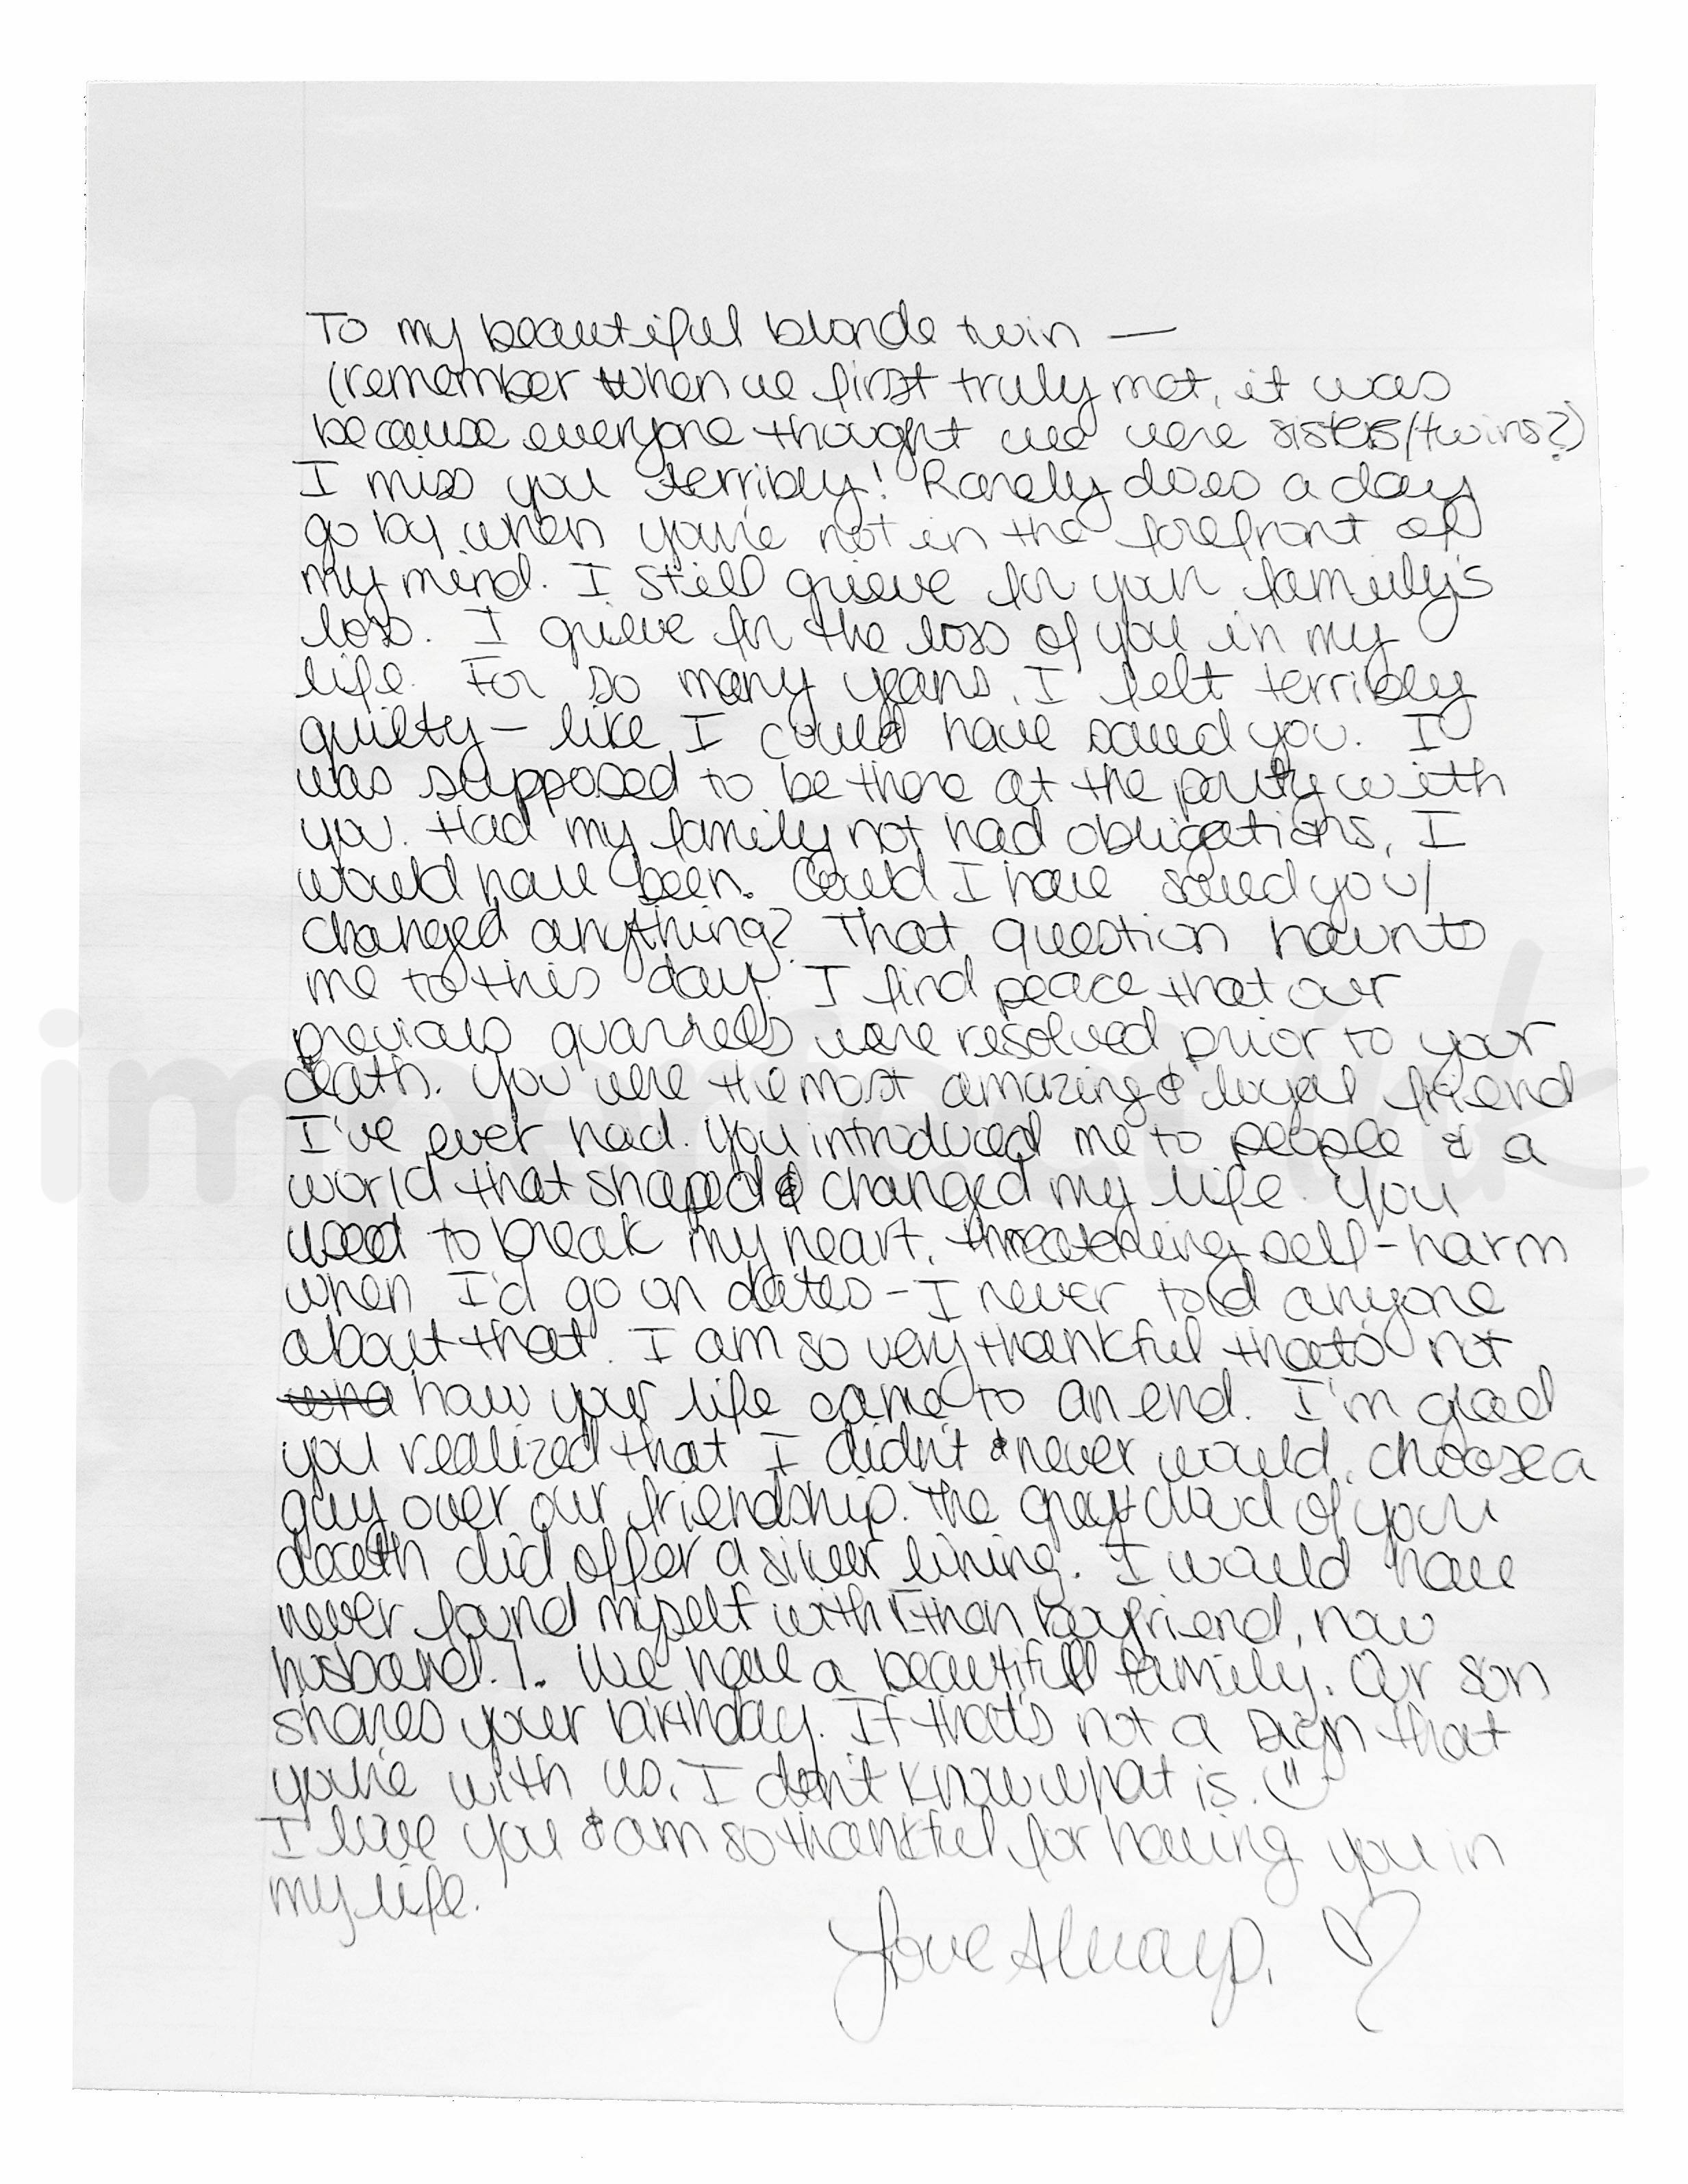 To my beautiful blonde twin —
(remember when we first truly met, it was
because everyone thought we were sisters/twins?)
I miss you terribly! Rarely does a day
go by when you're not in the forefront of
my mind. I still grieve for your family's
loss. I grieve for the loss of you in my
life. For so many years, I felt terribly
guilty – like I could have saved you. I
was supposed to be there at the party with
you. Had my family not had obligations, I
would have been. Could I have saved you/
changed anything? That question haunts
me to this day. I find peace that our
previous quarrels were resolved prior to your
death. You were the most amazing & loyal friend
I've ever had. You introduced me to people & a
world that shaped & changed my life. You
used to break my heart, threatening self-harm
when I'd go on dates – I never told anyone
about that. I am so very thankful that's not
how your life came to an end. I'm glad
you realized that I didn't & never would, choose a
guy over our friendship. The grey cloud of your
death did offer a silver lining. I would have
never found myself with then boyfriend, now
husband. We have a beautiful family. Our son
shares your birthday. If that's not a sign that
you're with us, I don't know what is.
I love you & am so thankful for having you in
my life.
Love Always,